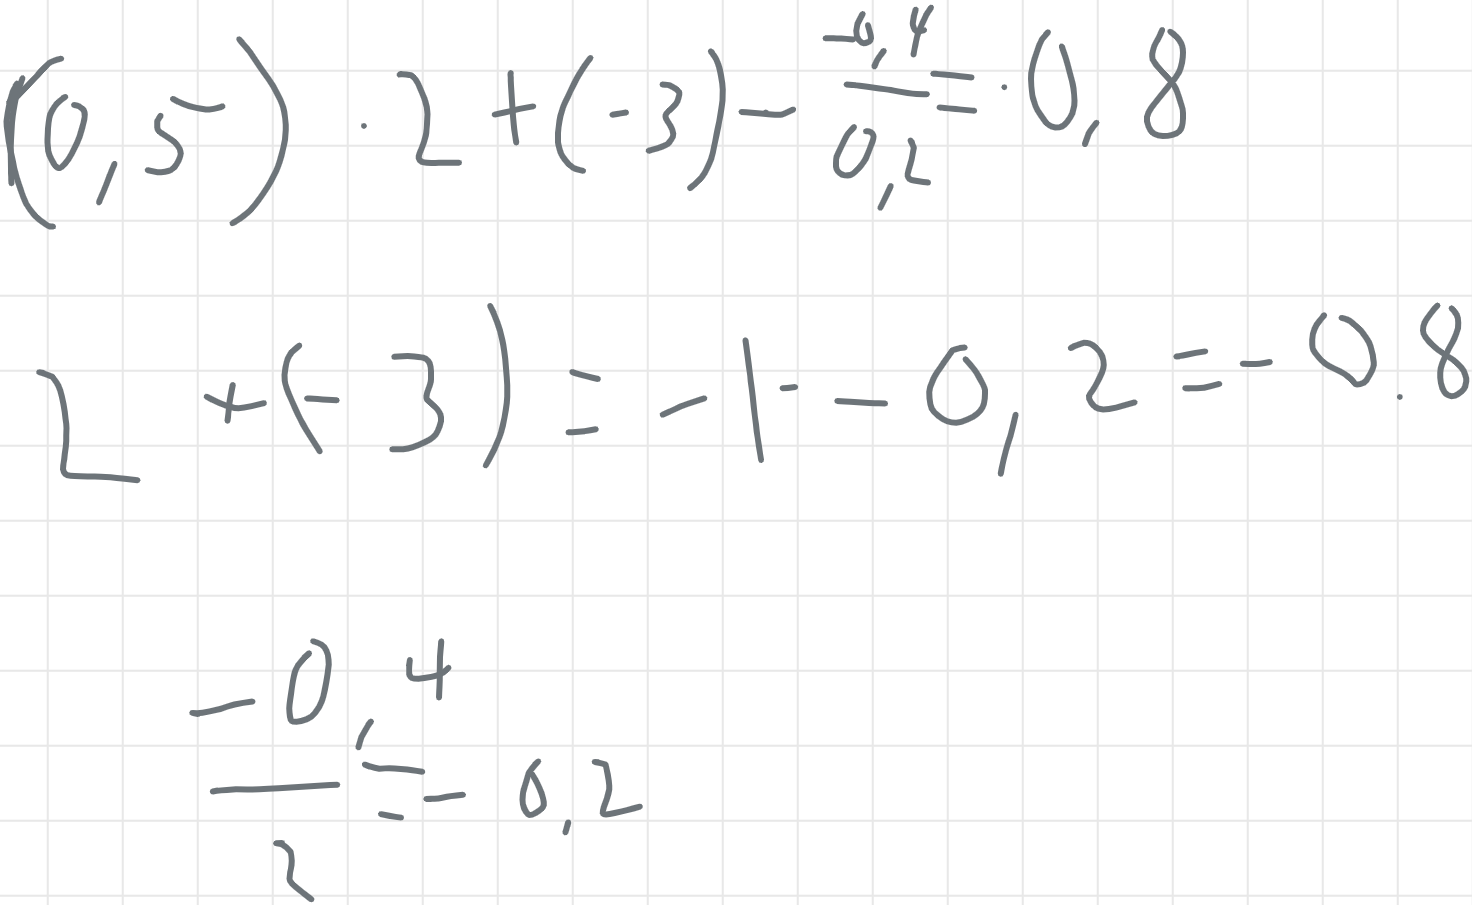 (0,5) · 2 + (-3) - -0,4/0,2 = · 0,8
2 + (-3) = -1 - - 0,2 = - 0.8
-0,4/2 = - 0,2